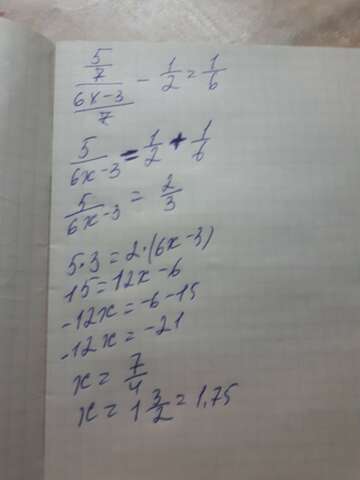 5/7 / (6x-3)/7 - 1/2 = 1/6
5/(6x-3) = 1/2 + 1/6
5/(6x-3) = 2/3
5·3 = 2·(6x-3)
15 = 12x - 6
-12x = -6 - 15
-12x = -21
x = 7/4
x = 1 3/2 = 1,75